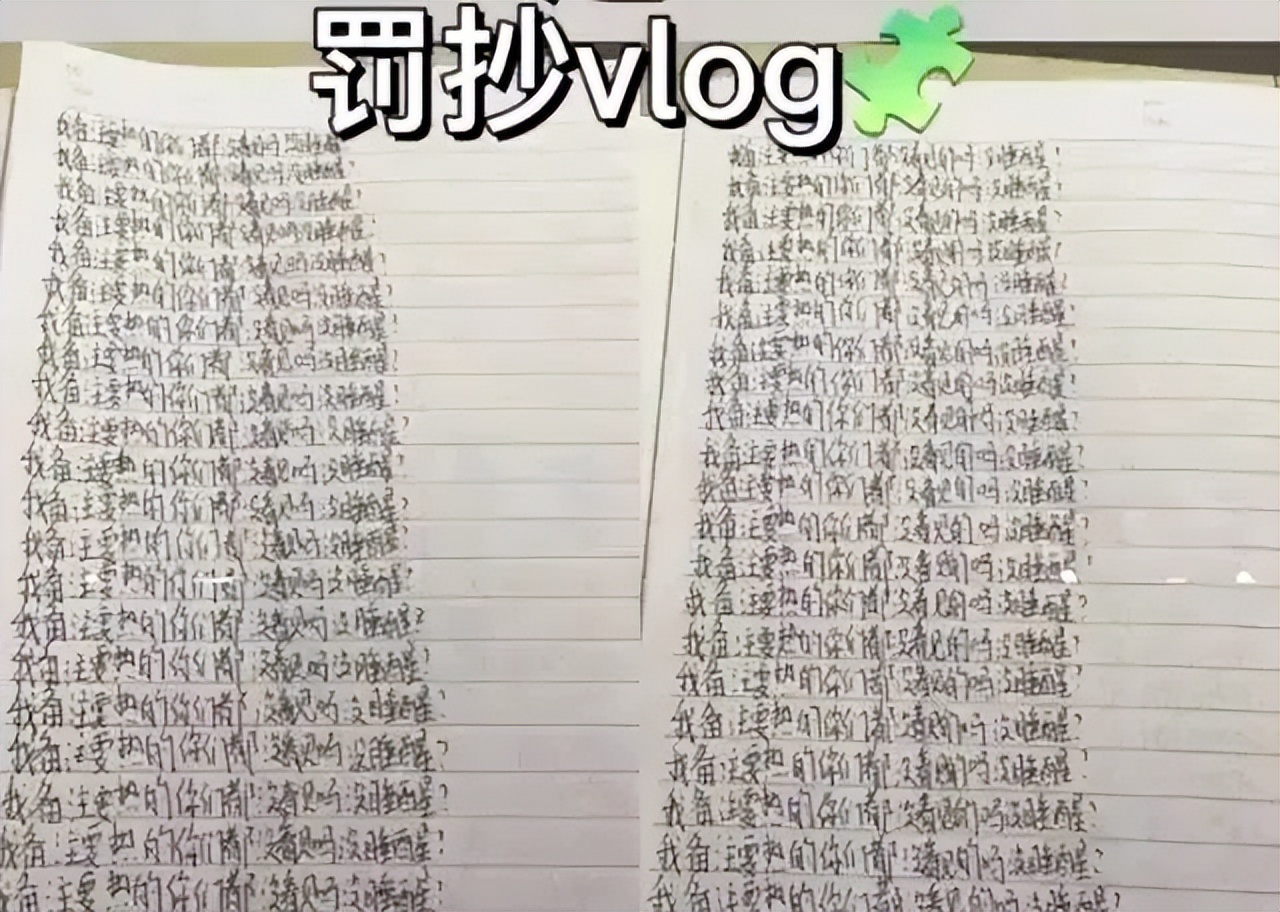 罚抄vlog
我备注要热的你们都没看见吗没睡醒
我备注要热的你们都没看见吗没睡醒?
我备注要热的你们都没看见吗没睡醒?
我备注要热的你们都没看见吗没睡醒?
我备注要热的你们都没看见吗没睡醒?
我备注要热的你们都没看见吗没睡醒?
我备注要热的你们都没看见吗没睡醒?
我备注要热的你们都没看见吗没睡醒?
我备注要热的你们都没看见吗没睡醒?
我备注要热的你们都没看见吗没睡醒?
我备注要热的你们都没看见吗没睡醒?
我备注要热的你们都没看见吗没睡醒?
我备注要热的你们都没看见吗没睡醒?
我备注要热的你们都没看见吗没睡醒?
我备注要热的你们都没看见吗没睡醒?
我备注要热的你们都没看见吗没睡醒?
我备注要热的你们都没看见吗没睡醒?
我备注要热的你们都没看见吗没睡醒?
我备注要热的你们都没看见吗没睡醒?
我备注要热的你们都没看见吗没睡醒?
我备注要热的你们都没看见吗没睡醒?
我备注要热的你们都没看见的吗没睡醒?
我备注要热的你们都没看见的吗没睡醒?
我备注要热的你们都没看见的吗没睡醒?
我备注要热的你们都没看见的吗没睡醒?
我备注要热的你们都没看见的吗没睡醒?
我备注要热的你们都没看见的吗没睡醒?
我备注要热的你们都没看见的吗没睡醒?
我备注要热的你们都没看见的吗没睡醒?
我备注要热的你们都没看见的吗没睡醒?
我备注要热的你们都没看见的吗没睡醒?
我备注要热的你们都没看见的吗没睡醒?
我备注要热的你们都没看见的吗没睡醒?
我备注要热的你们都没看见的吗没睡醒?
我备注要热的你们都没看见的吗没睡醒?
我备注要热的你们都没看见的吗没睡醒?
我备注要热的你们都没看见的吗没睡醒?
我备注要热的你们都没看见的吗没睡醒?
我备注要热的你们都没看见的吗没睡醒?
我备注要热的你们都没看见的吗没睡醒?
我备注要热的你们都没看见的吗没睡醒?
我备注要热的你们都没看见的吗没睡醒?